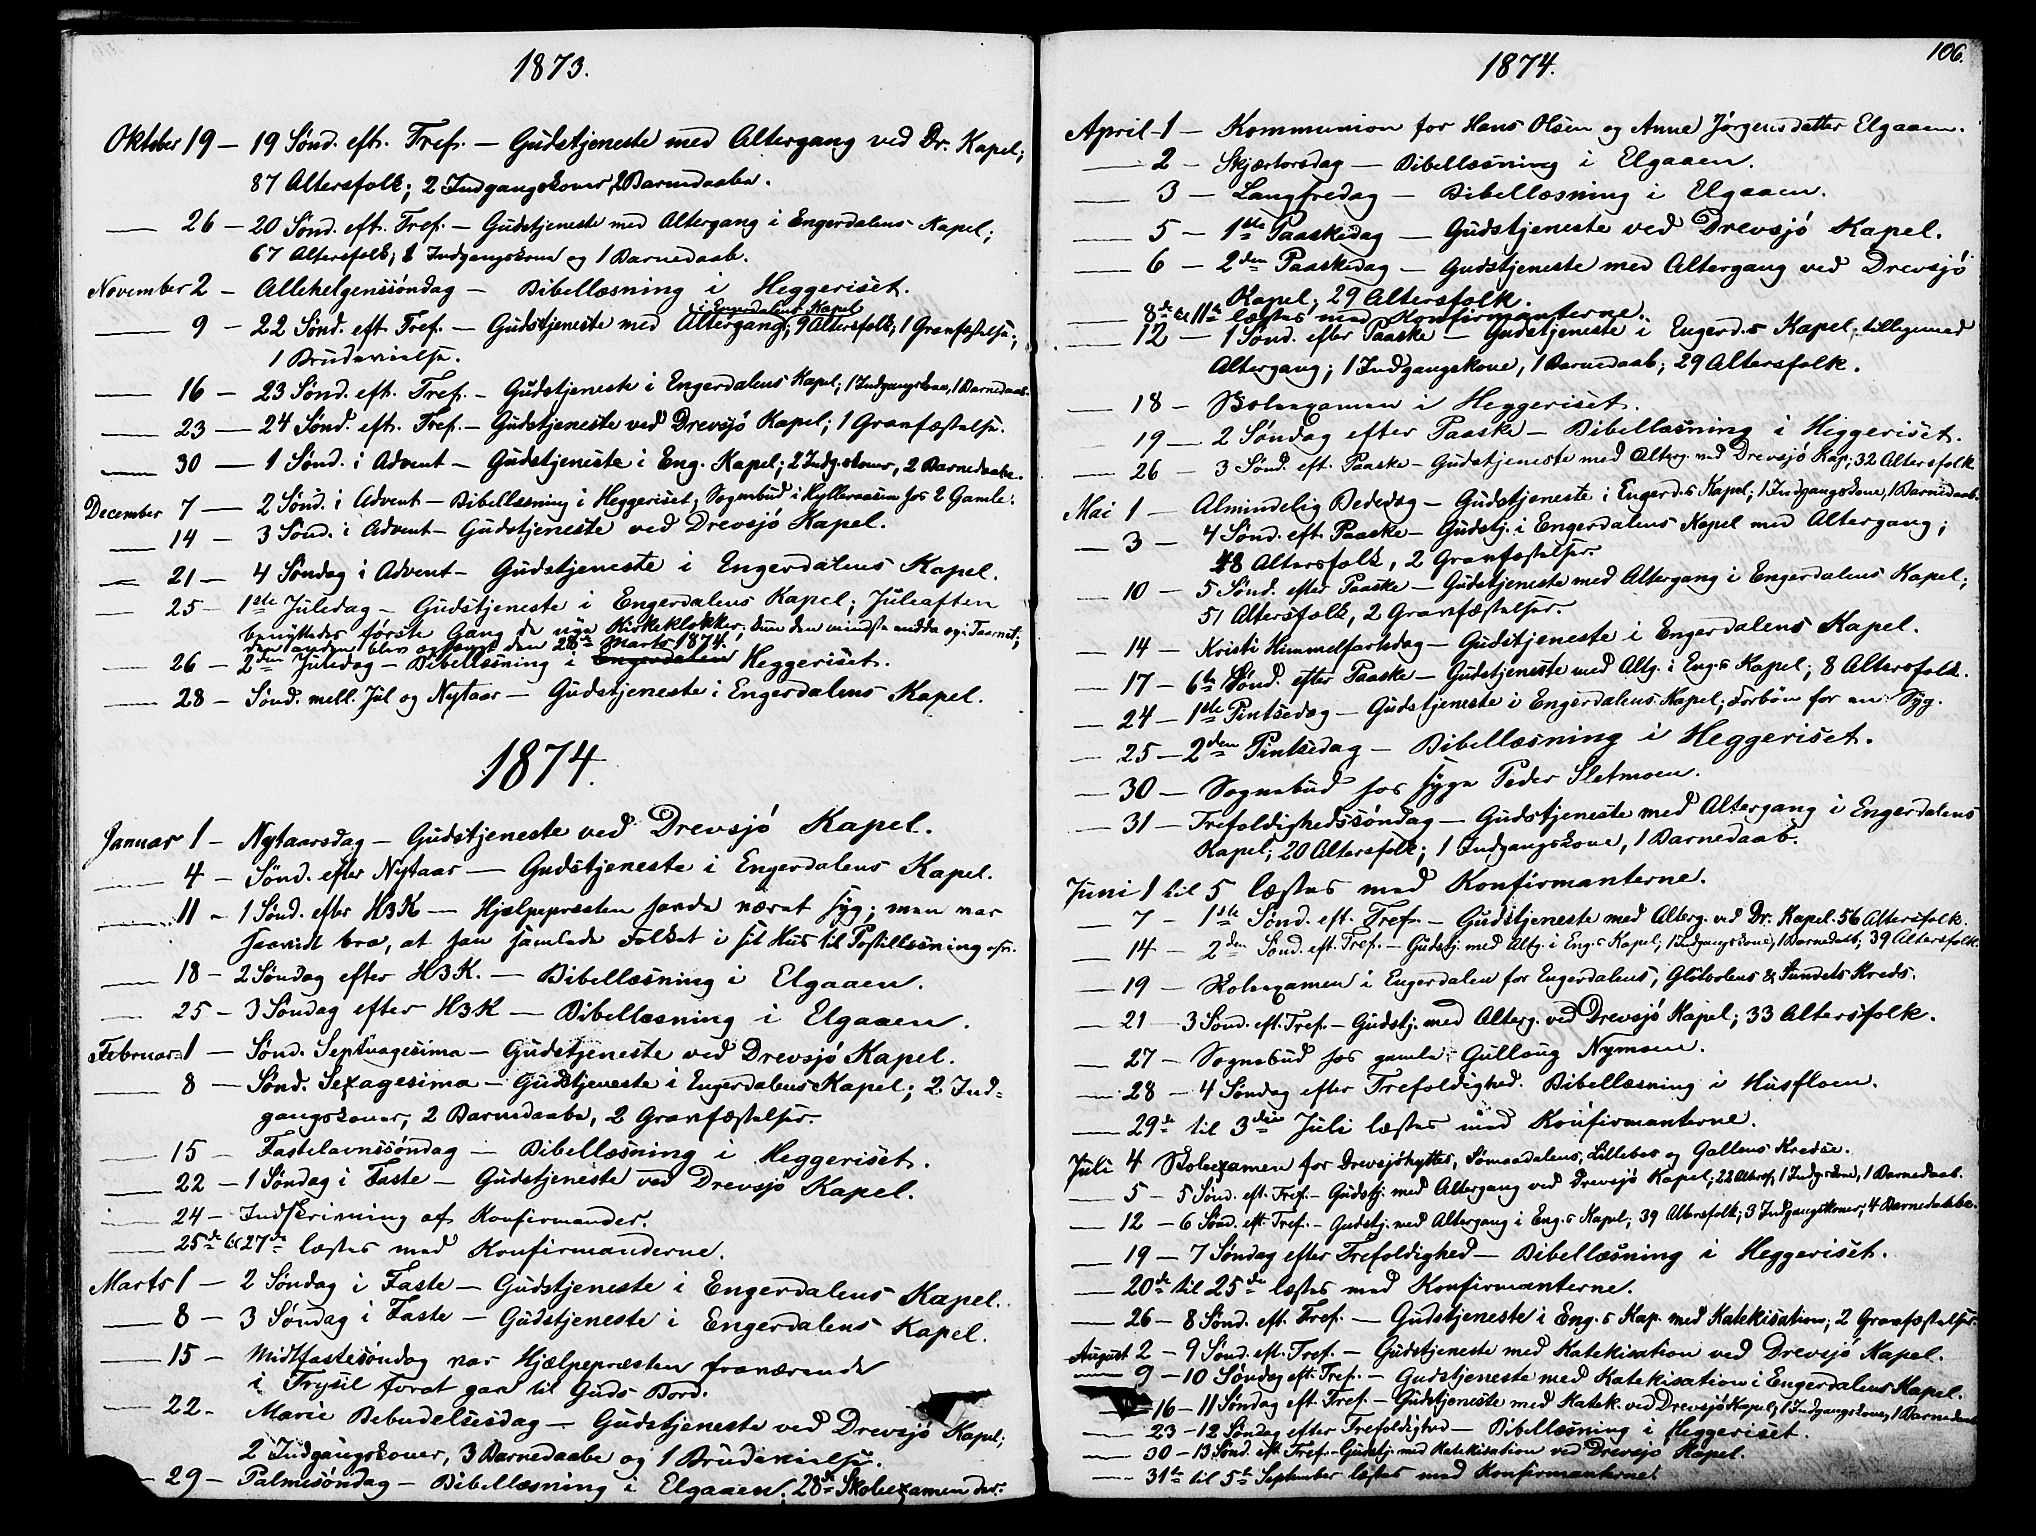 1873.
Oktober 19 — 19 Sønd. eft. Tref. — Gudstjeneste med Altergang ved Dr. Kapel;
87 Altersfolk; 2 Indgangskoner, 2 Barnedaabe.
— 26 — 20 Sønd. eft. Tref. — Gudstjeneste med Altergang i Engerdalens Kapel;
67 Altersfolk; 1 Indgangskone og 1 Barnedaab.
November 2 — Allehelgenssøndag — Bibellæsning i Heggeriset.
i Engerdalens Kapel
— 9 — 22 Sønd. eft. Tref. — Gudstjeneste med Altergang; 9 Altersfolk; 1 Gravfæstelse;
1 Brudevielse.
— 16 — 23 Sønd. eft. Tref. — Gudstjeneste i Engerdalens Kapel; 1 Indgangskone, 1 Barnedaab.
— 23 — 24 Sønd. eft. Tref. — Gudstjeneste ved Drevsjó Kapel; 1 Gravfæstelse.
— 30 — 1 Sønd. i Advent — Gudstjeneste i Eng. Kapel; 2 Indg.skoner, 2 Barnedaabe.
December 7 — 2 Sønd. i Advent — Bibellæsning i Heggeriset; Sognebud i Hylleraasen hos 2 Gamle.
— 14 — 3 Sønd. i Advent — Gudstjeneste ved Drevsjó Kapel.
— 21 — 4 Søndag i Advent — Gudstjeneste i Engerdalens Kapel.
— 25 — 1ste Juledag — Gudstjeneste i Engerdalens Kapel; Juleaften
benyttedes første Gang de nye Kirkeklokker; dun den mindste endda og i Taarnet;
den anden blev ophængt den 28de Marts 1874.
— 26 — 2den Juledag — Bibellæsning i Engerdalen Heggeriset.
— 28 — Sønd. mell. Jul og Nytaar — Gudstjeneste i Engerdalens Kapel.
1874.
Januar 1 — Nytaarsdag — Gudstjeneste ved Drevsjó Kapel.
— 4 — Sønd. efter Nytaar — Gudstjeneste i Engerdalens Kapel.
— 11 — 1 Sønd. efter H3K — Hjælpepræsten havde været syg; men var
saavidt bra, at han samlede Folket i sit Hus til Postillæsning
— 18 — 2 Søndag efter H3K. — Bibellæsning i Elgaaen.
— 25 — 3 Søndag efter H3K — Bibellæsning i Elgaaen.
Februar 1 — Sønd. Septuagesima — Gudstjeneste ved Drevsjó Kapel.
— 8 — Sønd. Sexagesima — Gudstjeneste i Engerdalens Kapel; 2 Ind=
gangskoner, 2 Barnedaabe, 2 Gravfæstelser.
— 15 — Fastelavnssøndag — Bibellæsning i Heggeriset.
— 22 — 1 Søndag i Faste — Gudstjeneste ved Drevsjó Kapel.
— 24 — Indskrivning af Konfirmander.
— 25de til 27de læstes med Konfirmanderne.
Marts 1 — 2 Søndag i Faste — Gudstjeneste i Engerdalens Kapel.
— 8 — 3 Søndag i Faste — Gudstjeneste i Engerdalens Kapel.
— 15 — Midtfastesøndag var Hjælpepræsten fraværende
i Trysil forat gaa til Guds Bord.
— 22 — Marie Bebudelsesdag — Gudstjeneste ved Drevsjó Kapel;
2 Indgangskoner, 3 Barnedaabe og 1 Brudevielse.
— 29 — Palmesøndag — Bibellæsning i Elgaaen; 28de Skoleexamen der.
106.
1874.
April 1 — Kommunion for Hans Olsen og Anne Jørgensdatter Elgaaen.
— 2 — Skjærtorsdag — Bibellæsning i Elgaaen.
— 3 — Langfredag — Bibellæsning i Elgaaen.
— 5 — 1ste Paaskedag — Gudstjeneste ved Drevsjó Kapel.
— 6 — 2den Paaskedag — Gudstjeneste med Altergang ved Drevsjó
Kapel; 29 Altersfolk.
— 8de til 11te læstes med Konfirmanterne.
— 12 — 1 Sønd. efter Paaske — Gudstjeneste i Engerd.s Kapel tilligemed
Altergang; 1 Indgangskone, 1 Barnedaab; 29 Altersfolk.
— 18 — Skoleexamen i Heggeriset.
— 19 — 2 Søndag efter Paaske — Bibellæsning i Heggeriset.
— 26 — 3 Sønd. eft. Paaske — Gudstjeneste med Alterg. ved Drevsjó Kap; 32 Altersfolk
Mai 1 — Almindelig Bededag — Gudstjeneste i Engerd.s Kapel; 1 Indgangskone, 1 Barnedaab.
— 3 — 4 Sønd. eft. Paaske — Gudstj. i Engerdalens Kapel med Altergang;
48 Altersfolk, 2 Gravfæstelser.
— 10 — 5 Sønd. efter Paaske — Gudstjeneste med Altergang i Engerdalens Kapel;
51 Altersfolk, 2 Gravfæstelser.
— 14 — Kristi Himmelfartsdag — Gudstjeneste i Engerdalens Kapel.
— 17 — 6te Sønd. efter Paaske — Gudstjeneste med Altg. i Eng.s Kapel; 8 Altersfolk.
— 24 — 1ste Pintsedag — Gudstjeneste i Engerdalens Kapel; Forbøn for en Syg.
— 25 — 2den Pintsedag — Bibellæsning i Heggeriset.
— 30 — Sognebud hos syge Peder Sletmoen.
— 31 — Trefoldighedssøndag — Gudstjeneste med Altergang i Engerdalens
Kapel; 20 Altersfolk; 1 Indgangskone, 1 Barnedaab.
Juni 1 til 5 læstes med Konfirmanterne.
— 7 — 1ste Sønd. eft. Tref. — Gudstjeneste med Alterg. ved Dr. Kapel. 56 Altersfolk.
— 14 — 2den Sønd. eft. Tref. — Gudstj. med Altg. i Eng.s Kapel; 1 Indgangskone, 1 Barnedaab, 39 Altersfolk.
— 19 — Skoleexamen i Engerdalen for Engerdalens, Gløtvolens & Sundets Kreds.
— 21 — 3 Sønd. eft. Tref. — Gudstj. med Alterg. ved Drevsjó Kapel; 33 Altersfolk.
— 27 — Sognebud hos gamle Gullaug Nymoen.
— 28 — 4 Søndag efter Trefoldighed. Bibellæsning i Husfloen.
— 29de til 3die Juli læstes med Konfirmanterne.
Juli 4 Skoleexamen for Drevsjóhyttes, Sømaadalens, Lillebos og Gallens Kredse.
— 5 — 5 Sønd. eft. Tref. — Gudstj. med Altergang ved Drevsjó Kapel; 22 Altersf, 1 Indg.skone, 1 Barnedaab.
— 12 — 6 Sønd. eft. Tref. — Gudstj. med Altergang i Eng.s Kapel; 39 Altersfolk; 3 Indgangskoner; 4 Barnedaabe.
— 19 — 7 Søndag efter Trefoldighed — Bibellæsning i Heggeriset.
— 20de til 25de læstes med Konfirmanterne.
— 26 — 8 Sønd. eft. Tref. — Gudstjeneste i Eng.s Kap. med Katekisation; 2 Gravfæstelser.
August 2 — 9 Sønd. eft. Tref. — Gudstjeneste med Katekisation ved Drevsjó Kapel.
— 9 — 10 Søndag eft. Tref. — Gudstjeneste med Katekisation i Engerdalens Kapel.
— 16 — 11 Søndag eft. Tref. — Gudstjeneste med Katek. ved Drevsjó Kapel, 1 Indgangskone, 1 Barnedaab
— 23 — 12 Søndag efter Trefoldighed — Bibellæsning i Heggeriset.
— 30 — 13 Sønd. eft. Tref. — Gudstj. med Katekisation ved Drevsjó Kapel.
— 31te til 5te September læstes med Konfirmanterne.